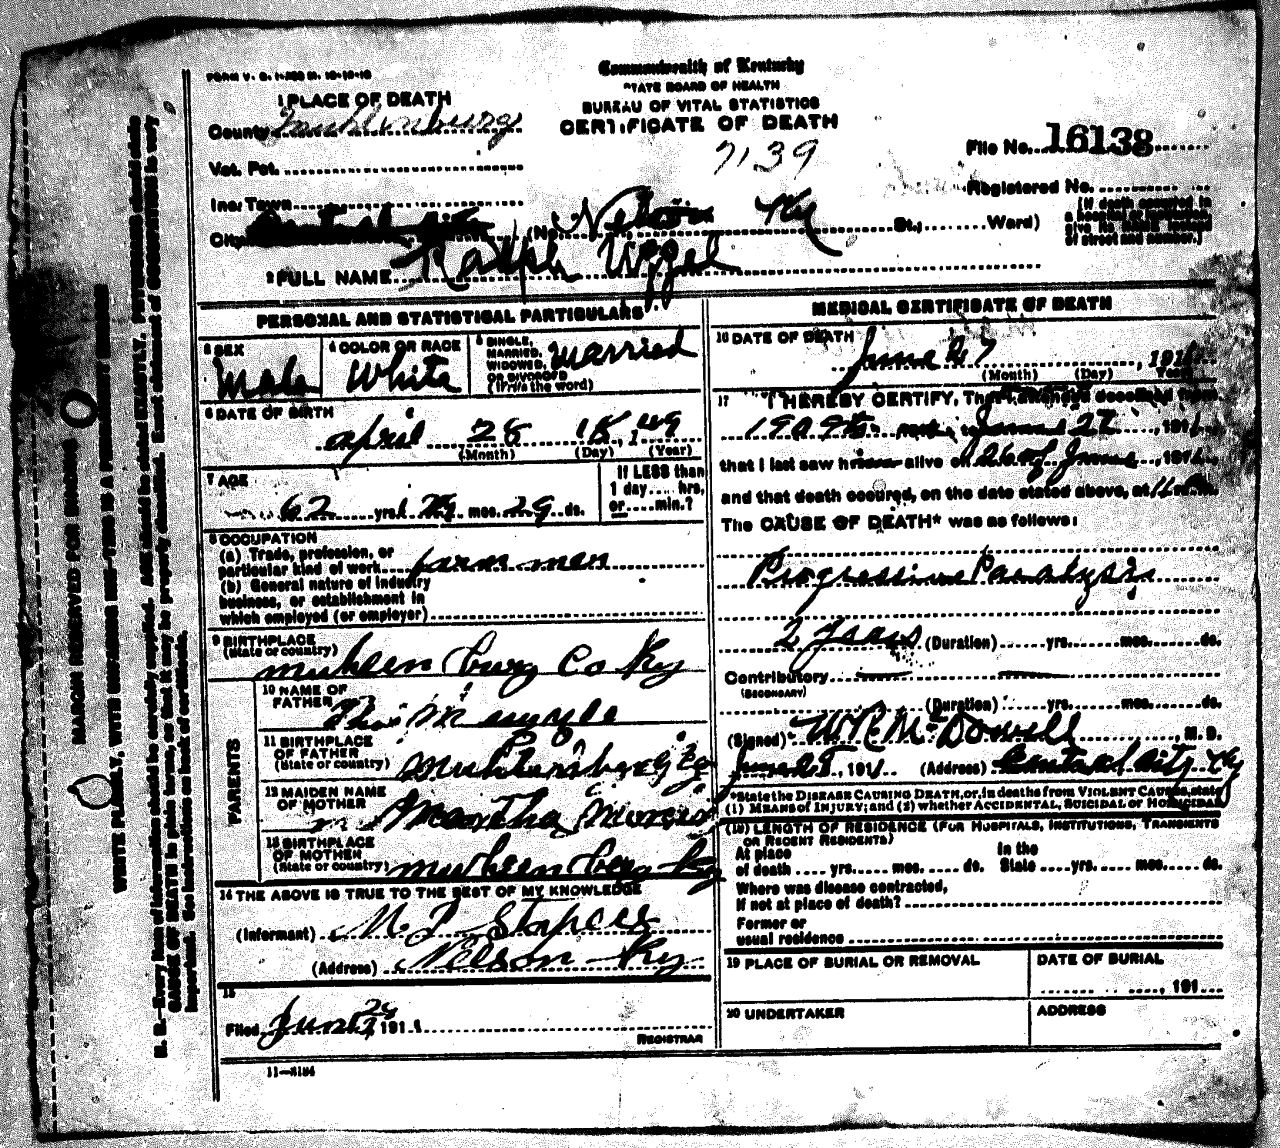 FORM V. S. 1-
Commonwealth of Kentucky
STATE BOARD OF HEALTH
BUREAU OF VITAL STATISTICS
CERTIFICATE OF DEATH
1 PLACE OF DEATH
County Muhlenburg
Vot. Pct.
Inc. Town
City (No. Nelson Ky St.; Ward)
7139
File No. 16138
Registered No.
[If death occurred in
a hospital or institution,
give its NAME instead
of street and number.]
2 FULL NAME Ralph Uzzel
PERSONAL AND STATISTICAL PARTICULARS
3 SEX
Male
4 COLOR OR RACE
White
5 SINGLE,
MARRIED,
WIDOWED,
OR DIVORCED
(Write the word)
Married
6 DATE OF BIRTH
april 28 1849
(Month) (Day) (Year)
7 AGE
62 yrs. mos. 29 ds.
If LESS than
1 day.... hrs,
or....min.?
8 OCCUPATION
(a) Trade, profession, or
particular kind of work farm men
(b) General nature of industry
business, or establishment in
which employed (or employer)
9 BIRTHPLACE
(State or country)
muhlen burg Co Ky
PARENTS
10 NAME OF
FATHER
11 BIRTHPLACE
OF FATHER
(State or country)
12 MAIDEN NAME
OF MOTHER
Martha
13 BIRTHPLACE
OF MOTHER
(State or country) muhlen berg Ky
14 THE ABOVE IS TRUE TO THE BEST OF MY KNOWLEDGE
(Informant)
(Address) Nelson Ky
15
Filed June 28 1911
REGISTRAR
11-3184
MEDICAL CERTIFICATE OF DEATH
16 DATE OF DEATH
June 27, 1911
(Month) (Day) Year
17 I HEREBY CERTIFY, That I attended deceased from
1909 to June 27, 1911
that I last saw h alive on 26 of June, 191
and that death occured, on the date stated above, at 11 m.
The CAUSE OF DEATH* was as follows:
Progressive Paralysis
2 years (Duration) yrs. mos. ds.
Contributory
(SECONDARY)
(Duration) yrs. mos. ds.
(Signed) McDowell, M. D.
June 28, 1911 (Address) Central City Ky
*State the DISEASE CAUSING DEATH, or, in deaths from VIOLENT CAUSES, state
(1) MEANS of INJURY; and (2) whether ACCIDENTAL, SUICIDAL or HOMICIDAL
(18) LENGTH OF RESIDENCE (FOR HOSPITALS, INSTITUTIONS, TRANSIENTS
OR RECENT RESIDENTS)
At place
of death .... yrs..... mos. .... ds.
In the
State ....yrs..... mos..... ds.
Where was disease contracted,
If not at place of death?
Former or
usual residence
19 PLACE OF BURIAL OR REMOVAL
DATE OF BURIAL
, 191
20 UNDERTAKER
ADDRESS
MARGIN RESERVED FOR BINDING
WRITE PLAINLY, WITH UNFADING INK—THIS IS A PERMANENT RECORD
N. B.—Every item of information should be carefully supplied. AGE should be stated EXACTLY. PHYSICIANS should state
CAUSE OF DEATH in plain terms, so that it may be properly classified. Exact statement of OCCUPATION is very
important. See instructions on back of certificate.